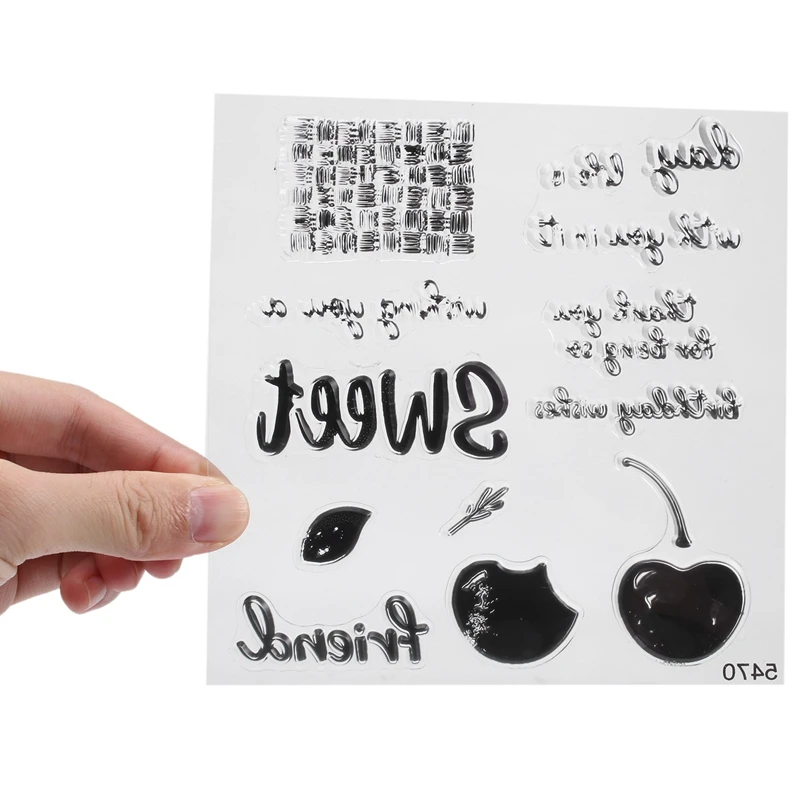 day
like a
with you in it
wishing you a
thank you
for being so
birthday wishes
sweet
friend
5470